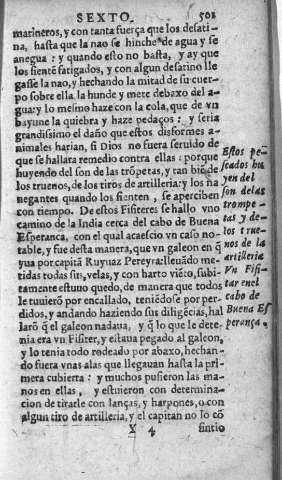 SEXTO. 501
marineros, y con tanta fuerça que los desati-
na, hasta que la nao se hinche de agua y se
anegua : y quando esto no basta, y ay que
los siente fatigados, y con algun desatino lle
gasse la nao, y hechando la mitad de su cuer-
po sobre ella la hunde y mete debaxo del a-
gua: y lo mesmo haze con la cola, que de vn
bayune la quiebra y haze pedaços : y seria
grandissimo el daño que estos disformes a-
nimales harian, si Dios no fuera seruido de
que se hallara remedio contra ellas : porque
huyendo del son de las trõpetas, y tan biē de
los truenos, de los tiros de artilleria: y los na
negantes quando los sienten, se aperciben
con tiempo. De estos Fisiteres se hallo vno
camino de la India cerca del cabo de Buena
Esperança, con el qual acaescio vn caso no-
table, y fue desta manera, que vn galeon en q̃
yua por capitã Ruynaz Pereyra: lleuãdo me-
tidas todas sus velas, y con harto viēto, subi-
tamente estuuo quedo, de manera que todos
le tuuierõ por encallado, teniēdose por per-
didos, y andando haziendo sus diligēcias, hal
larõ q̃ el galeon nadaua, y q̃ lo que le dete-
nia era vn Fisiter, y estaua pegado al galeon,
y lo tenia todo rodeado por abaxo, hechan-
do fuera vnas alas que llegauan hasta la pri-
mera cubierta : y muchos pusieron las ma-
nos en ellas, y estuuieron con determina-
cion de tirarle con lanças, y harpones, o con
algun tiro de artilleria, y el capitan no lo cõ
X 4 sintio
Estos pe-
scados hu
yen del
son delas
trompe-
tas y de-
los true-
nos de la
artilleria
Vn Fisi-
tar enel
cabo de
Buena Es
perança.